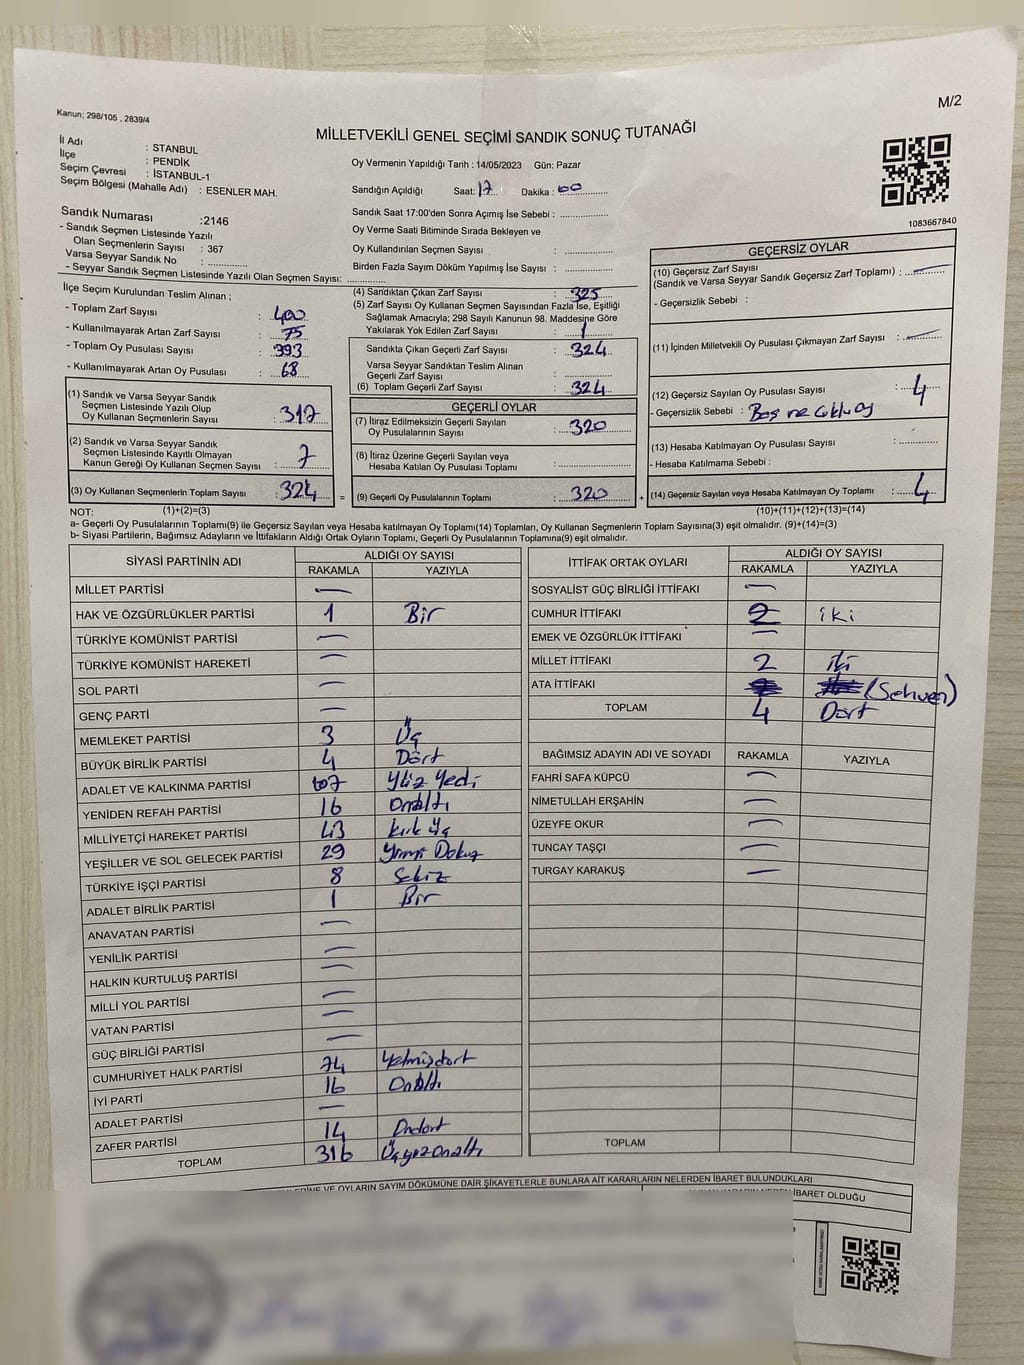 M/2
Kanun; 298/105 , 2839/4
MİLLETVEKİLİ GENEL SEÇİMİ SANDIK SONUÇ TUTANAĞI
İl Adı : STANBUL
İlçe : PENDİK
Seçim Çevresi : İSTANBUL-1
Seçim Bölgesi (Mahalle Adı) : ESENLER MAH.
Sandık Numarası :2146
- Sandık Seçmen Listesinde Yazılı
Olan Seçmenlerin Sayısı : 367
Varsa Seyyar Sandık No :
- Seyyar Sandık Seçmen Listesinde Yazılı Olan Seçmen Sayısı:
Oy Vermenin Yapıldığı Tarih : 14/05/2023 Gün: Pazar
Sandığın Açıldığı Saat: 17 Dakika : 00
Sandık Saat 17:00'den Sonra Açımış İse Sebebi :
Oy Verme Saati Bitiminde Sırada Bekleyen ve
Oy Kullandırılan Seçmen Sayısı :
Birden Fazla Sayım Döküm Yapılmış İse Sayısı :
1083667840
İlçe Seçim Kurulundan Teslim Alınan ;
- Toplam Zarf Sayısı : 400
- Kullanılmayarak Artan Zarf Sayısı : 75
- Toplam Oy Pusulası Sayısı : 393
- Kullanılmayarak Artan Oy Pusulası : 68
(1) Sandık ve Varsa Seyyar Sandık
Seçmen Listesinde Yazılı Olup
Oy Kullanan Seçmenlerin Sayısı : 317
(2) Sandık ve Varsa Seyyar Sandık
Seçmen Listesinde Kayıtlı Olmayan
Kanun Gereği Oy Kullanan Seçmen Sayısı : 7
(3) Oy Kullanan Seçmenlerin Toplam Sayısı : 324
(4) Sandıktan Çıkan Zarf Sayısı : 325
(5) Zarf Sayısı Oy Kullanan Seçmen Sayısından Fazla İse, Eşitliği
Sağlamak Amacıyla; 298 Sayılı Kanunun 98. Maddesine Göre
Yakılarak Yok Edilen Zarf Sayısı : 1
Sandıkta Çıkan Geçerli Zarf Sayısı : 324
Varsa Seyyar Sandıktan Teslim Alınan
Geçerli Zarf Sayısı :
(6) Toplam Geçerli Zarf Sayısı : 324
GEÇERLİ OYLAR
(7) İtiraz Edilmeksizin Geçerli Sayılan
Oy Pusulalarının Sayısı : 320
(8) İtiraz Üzerine Geçerli Sayılan veya
Hesaba Katılan Oy Pusulası Toplamı :
= (9) Geçerli Oy Pusulalarının Toplamı : 320 +
GEÇERSİZ OYLAR
(10) Geçersiz Zarf Sayısı
(Sandık ve Varsa Seyyar Sandık Geçersiz Zarf Toplamı) : —
- Geçersizlik Sebebi :
(11) İçinden Milletvekili Oy Pusulası Çıkmayan Zarf Sayısı : —
(12) Geçersiz Sayılan Oy Pusulası Sayısı : 4
- Geçersizlik Sebebi : Boş ve Çoklu oy
(13) Hesaba Katılmayan Oy Pusulası Sayısı :
- Hesaba Katılmama Sebebi :
(14) Geçersiz Sayılan veya Hesaba Katılmayan Oy Toplamı : 4
NOT: (1)+(2)=(3) (10)+(11)+(12)+(13)=(14)
a- Geçerli Oy Pusulalarının Toplamı(9) ile Geçersiz Sayılan veya Hesaba katılmayan Oy Toplamı(14) Toplamları, Oy Kullanan Seçmenlerin Toplam Sayısına(3) eşit olmalıdır. (9)+(14)=(3)
b- Siyasi Partilerin, Bağımsız Adayların ve İttifakların Aldığı Ortak Oyların Toplamı, Geçerli Oy Pusulalarının Toplamına(9) eşit olmalıdır.
SİYASİ PARTİNİN ADI ALDIĞI OY SAYISI
RAKAMLA YAZIYLA
MİLLET PARTİSİ —
HAK VE ÖZGÜRLÜKLER PARTİSİ 1 Bir
TÜRKİYE KOMÜNİST PARTİSİ —
TÜRKİYE KOMÜNİST HAREKETİ —
SOL PARTİ —
GENÇ PARTİ —
MEMLEKET PARTİSİ 3 Üç
BÜYÜK BİRLİK PARTİSİ 4 Dört
ADALET VE KALKINMA PARTİSİ 107 Yüz Yedi
YENİDEN REFAH PARTİSİ 16 Onaltı
MİLLİYETÇİ HAREKET PARTİSİ 43 kırk üç
YEŞİLLER VE SOL GELECEK PARTİSİ 29 Yirmi Dokuz
TÜRKİYE İŞÇİ PARTİSİ 8 Sekiz
ADALET BİRLİK PARTİSİ 1 Bir
ANAVATAN PARTİSİ —
YENİLİK PARTİSİ —
HALKIN KURTULUŞ PARTİSİ —
MİLLİ YOL PARTİSİ —
VATAN PARTİSİ —
GÜÇ BİRLİĞİ PARTİSİ —
CUMHURİYET HALK PARTİSİ 74 Yetmişdört
İYİ PARTİ 16 Onaltı
ADALET PARTİSİ —
ZAFER PARTİSİ 14 Ondört
TOPLAM 316 Üçyüzonaltı
İTTİFAK ORTAK OYLARI ALDIĞI OY SAYISI
RAKAMLA YAZIYLA
SOSYALİST GÜÇ BİRLİĞİ İTTİFAKI —
CUMHUR İTTİFAKI 2 iki
EMEK VE ÖZGÜRLÜK İTTİFAKI —
MİLLET İTTİFAKI 2 iki
ATA İTTİFAKI (Sehven)
TOPLAM 4 Dört
BAĞIMSIZ ADAYIN ADI VE SOYADI RAKAMLA YAZIYLA
FAHRİ SAFA KÜPCÜ —
NİMETULLAH ERŞAHİN —
ÜZEYFE OKUR —
TUNCAY TAŞÇI —
TURGAY KARAKUŞ —
TOPLAM
VE OYLARIN SAYIM DÖKÜMÜNE DAİR ŞİKAYETLERLE BUNLARA AİT KARARLARIN NELERDEN İBARET BULUNDUKLARI
İBARET OLDUĞU